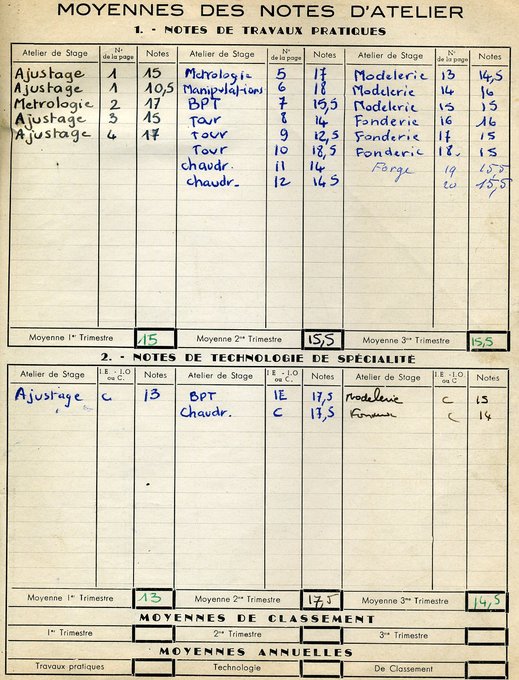 MOYENNES DES NOTES D'ATELIER
1. - NOTES DE TRAVAUX PRATIQUES
Atelier de Stage N° de la page Notes Atelier de Stage N° de la page Notes Atelier de Stage N° de la page Notes
Ajustage 1 15 Metrologie 5 17 Modelerie 13 14,5
Ajustage 1 10,5 Manipulations 6 18 Modelerie 14 16
Metrologie 2 17 BPT 7 15,5 Modelerie 15 15
Ajustage 3 15 Tour 8 14 Fonderie 16 16
Ajustage 4 17 Tour 9 12,5 Fonderie 17 15
Tour 10 18,5 Fonderie 18. 15
chaudr. 11 14 Forge 19 15,5
chaudr. 12 14,5 20 15,5
Moyenne 1er Trimestre 15 Moyenne 2me Trimestre 15,5 Moyenne 3me Trimestre 15,5
2. - NOTES DE TECHNOLOGIE DE SPÉCIALITÉ
Atelier de Stage I.E. - I.O ou C. Notes Atelier de Stage I.E. - I.O ou C. Notes Atelier de Stage I.E. - I.O ou C. Notes
Ajustage C 13 BPT IE 17,5 Modelerie C 15
Chaudr. C 17,5 C 14
Moyenne 1er Trimestre 13 Moyenne 2me Trimestre 17,5 Moyenne 3me Trimestre 14,5
MOYENNES DE CLASSEMENT
1er Trimestre 2me Trimestre 3me Trimestre
MOYENNES ANNUELLES
Travaux pratiques Technologie De Classement